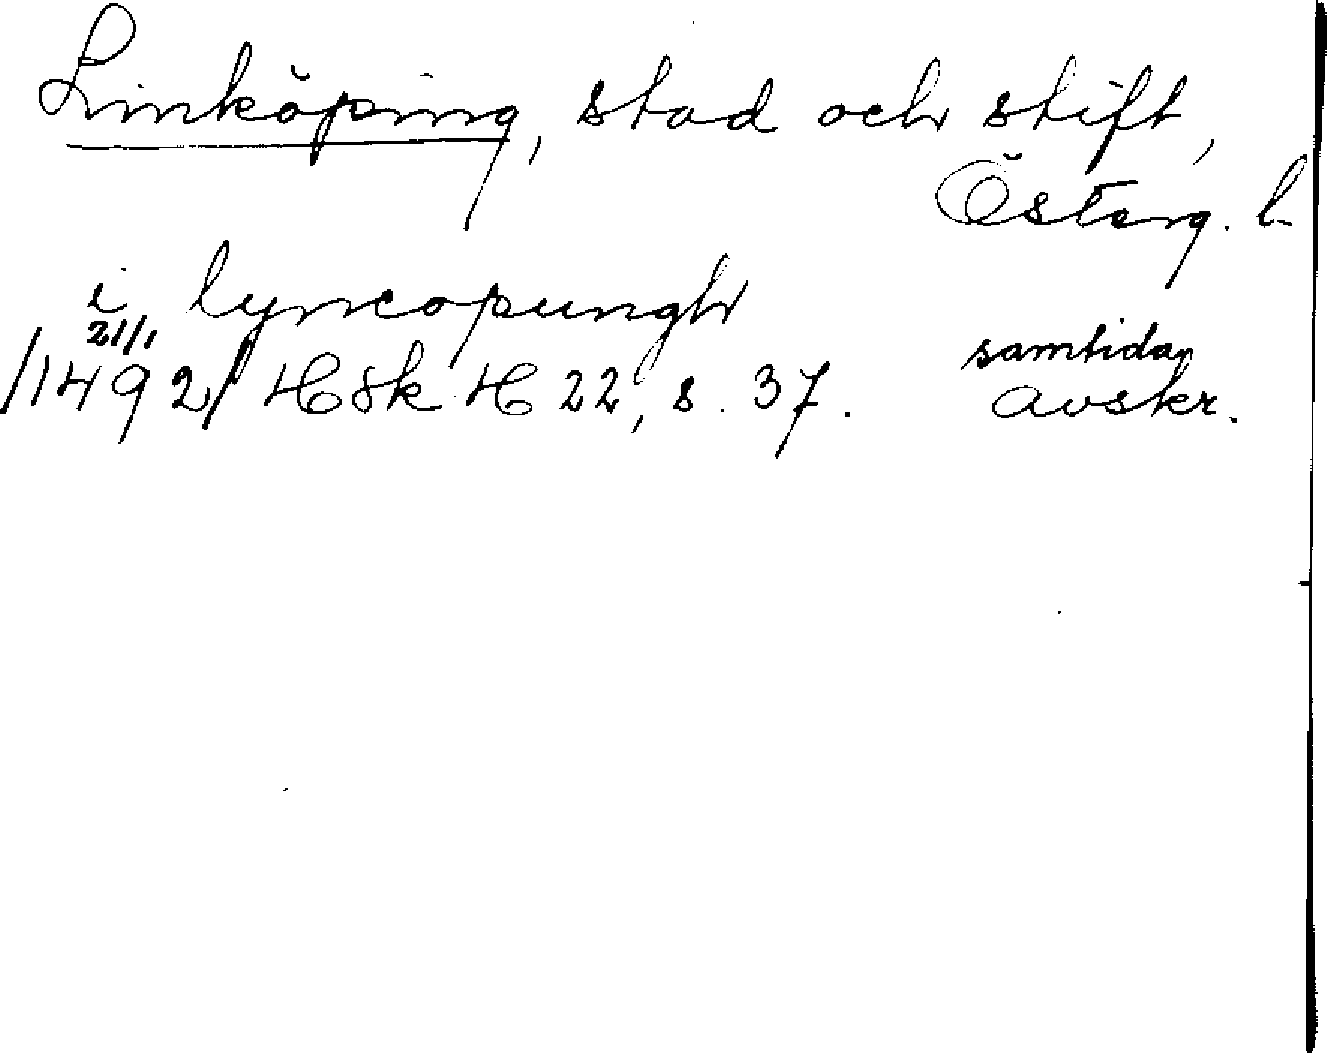 Linköping, stad och stift,
Österg. l.
i lyncopungh
21/1 samtida
/1492/ HSk H 22, s. 37. avskr.